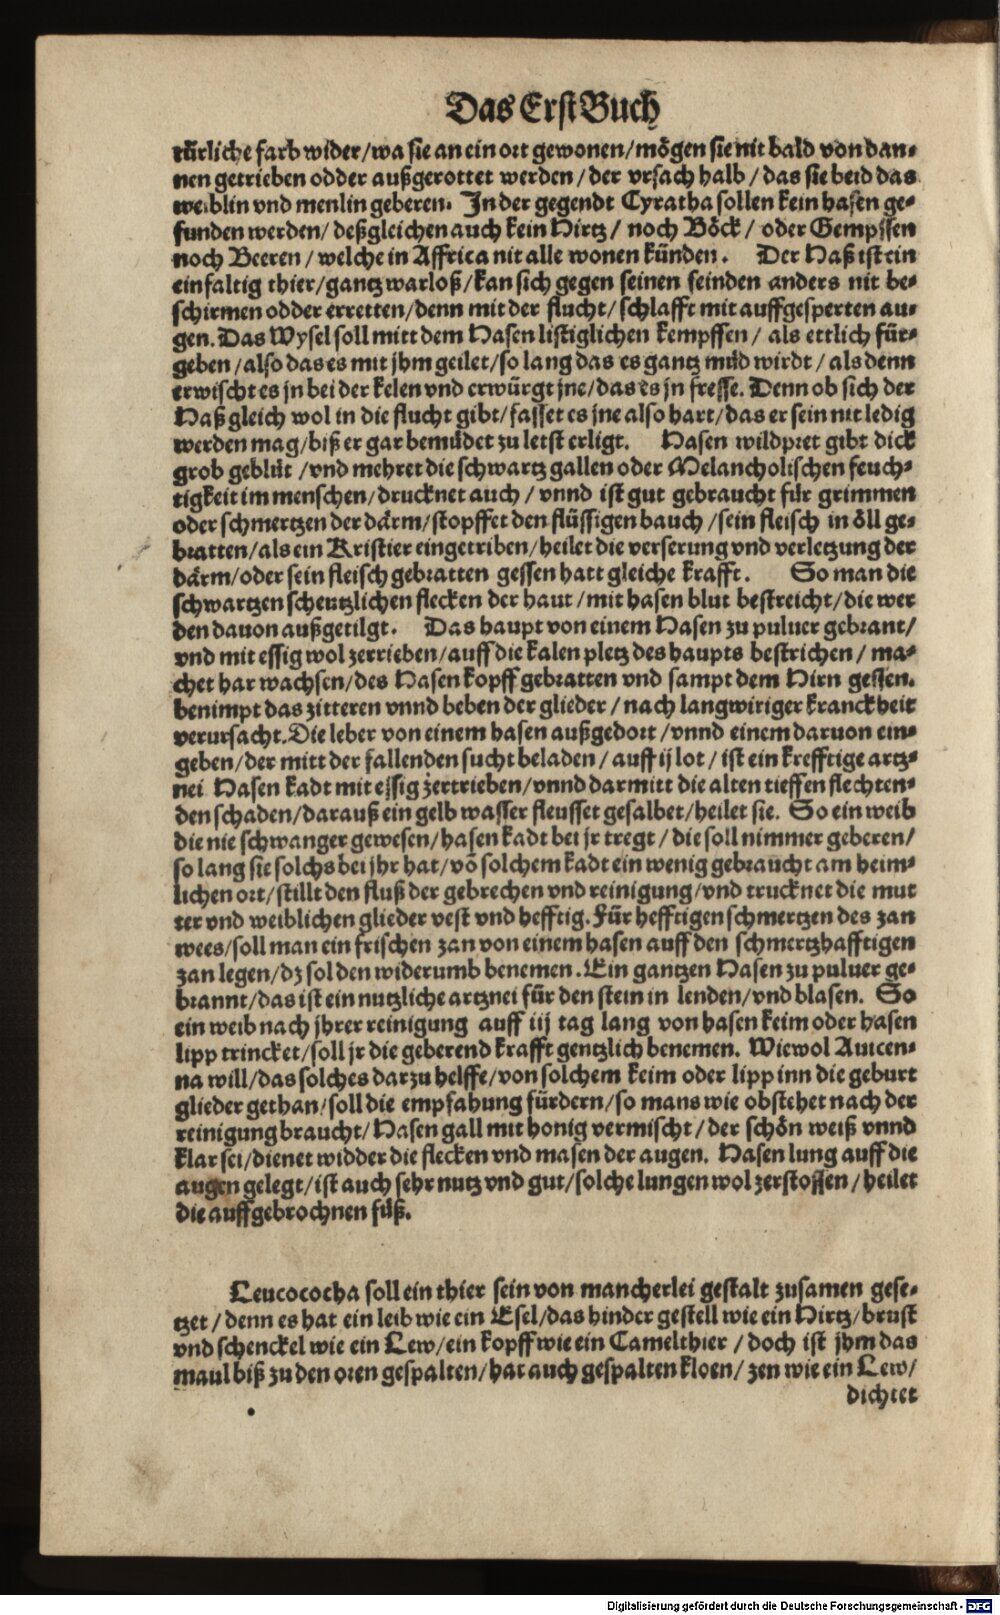 Das Erst Buch
türliche farb wider/wa sie an ein ort gewonen/mögen sie nit bald von dan⸗
nen getrieben odder außgerottet werden/der vrsach halb/das sie beid das
weiblin vnd menlin geberen. In der gegendt Cyratha sollen kein hasen ge⸗
funden werden/deßgleichen auch kein Hirtz/noch Böck/oder Gempssen
noch Beeren/welche in Affrica nit alle wonen künden. Der Haß ist ein
einfaltig thier/gantz warloß/kan sich gegen seinen feinden anders nit be⸗
schirmen odder erretten/denn mit der flucht/schlafft mit auffgesperten au⸗
gen. Das Wysel soll mitt dem Hasen listiglichen kempffen/als ettlich für⸗
geben/also das es mit jhm geilet/so lang das es gantz müd wirdt/als denn
erwischt es jn bei der kelen vnd erwürgt jne/das es jn fresse. Denn ob sich der
Haß gleich wol in die flucht gibt/fasset es jne also hart/das er sein nit ledig
werden mag/biß er gar bemüdet zu letst erligt. Hasen wildpret gibt dick
grob geblüt/vnd mehret die schwartz gallen oder Melancholischen feuch⸗
tigkeit im menschen/drucknet auch/vnnd ist gut gebraucht für grimmen
oder schmertzen der därm/stopffet den flüssigen bauch/sein fleisch in öll ge⸗
bratten/als ein Kristier eingetriben/heilet die verserung vnd verletzung der
därm/oder sein fleisch gebratten gessen hatt gleiche krafft. So man die
schwartzen scheutzlichen flecken der haut/mit hasen blut bestreicht/die wer
den dauon außgetilgt. Das haupt von einem Hasen zu puluer gebrant/
vnd mit essig wol zerrieben/auff die kalen pletz des haupts bestrichen/ma⸗
chet har wachsen/des Hasen kopff gebratten vnd sampt dem Hirn gessen.
benimpt das zitteren vnnd beben der glieder/nach langwiriger kranckheit
verursacht. Die leber von einem hasen außgedort/vnnd einem daruon ein⸗
geben/der mitt der fallenden sucht beladen/auff ij lot/ist ein krefftige artz⸗
nei Hasen kadt mit essig zertrieben/vnnd darmitt die alten tieffen flechten⸗
den schaden/darauß ein gelb wasser fleusset gesalbet/heilet sie. So ein weib
die nie schwanger gewesen/hasen kadt bei jr tregt/die soll nimmer geberen/
so lang sie solchs bei jhr hat/võ solchem kadt ein wenig gebraucht am heim⸗
lichen ort/stillt den fluß der gebrechen vnd reinigung/vnd trucknet die mut
ter vnd weiblichen glieder vest vnd hefftig. Für hefftigen schmertzen des zan
wees/soll man ein frischen zan von einem hasen auff den schmertzhafftigen
zan legen/dz sol den widerumb benemen. Ein gantzen Hasen zu puluer ge⸗
brannt/das ist ein nutzliche artznei für den stein in lenden/vnd blasen. So
ein weib nach jhrer reinigung auff iij tag lang von hasen keim oder hasen
lipp trincket/soll jr die geberend krafft gentzlich benemen. Wiewol Auicen⸗
na will/das solches darzu helffe/von solchem keim oder lipp inn die geburt
glieder gethan/soll die empfahung fürdern/so mans wie obstehet nach der
reinigung braucht/Hasen gall mit honig vermischt/der schön weiß vnnd
klar sei/dienet widder die flecken vnd masen der augen. Hasen lung auff die
augen gelegt/ist auch sehr nutz vnd gut/solche lungen wol zerstossen/heilet
die auffgebrochnen füß.
Leucococha soll ein thier sein von mancherlei gestalt zusamen gese⸗
tzet/denn es hat ein leib wie ein Esel/das hinder gestell wie ein Hirtz/brust
vnd schenckel wie ein Lew/ein kopff wie ein Camelthier/doch ist jhm das
maul biß zu den oren gespalten/hat auch gespalten kloen/zen wie ein Lew/
dichtet
Digitalisierung gefördert durch die Deutsche Forschungsgemeinschaft - DFG